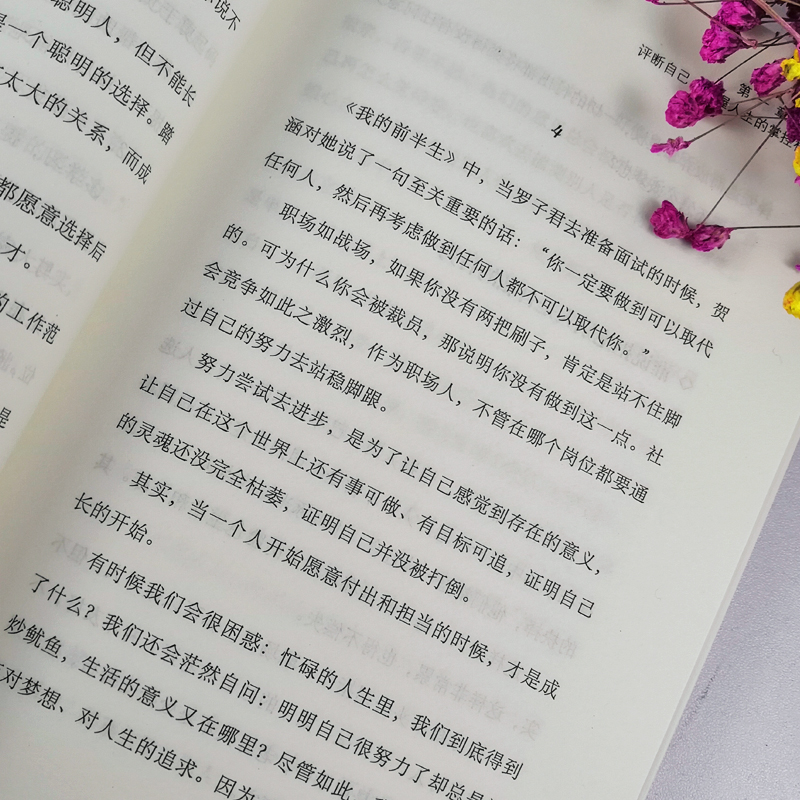 说不
聪明人，但不能长
是一个聪明的选择。踏
太大的关系，而成
都愿意选择后
才。
的工作范
是
评断自己
第
人生的掌控
4
《我的前半生》中，当罗子君去准备面试的时候，贺
涵对她说了一句至关重要的话：“你一定要做到可以取代
任何人，然后再考虑做到任何人都不可以取代你。”
职场如战场，如果你没有两把刷子，肯定是站不住脚
的。可为什么你会被裁员，那说明你没有做到这一点。社
会竞争如此之激烈，作为职场人，不管在哪个岗位都要通
过自己的努力去站稳脚跟。
努力尝试去进步，是为了让自己感觉到存在的意义，
让自己在这个世界上还有事可做、有目标可追，证明自己
的灵魂还没完全枯萎，证明自己并没被打倒。
其实，当一个人开始愿意付出和担当的时候，才是成
长的开始。
有时候我们会很困惑：忙碌的人生里，我们到底得到
了什么？我们还会茫然自问：明明自己很努力了却总是
炒鱿鱼，生活的意义又在哪里？尽管如此，
对梦想、对人生的追求。因为